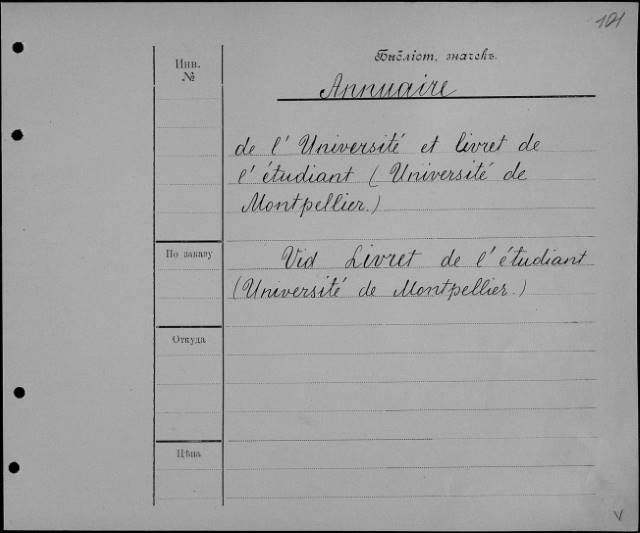 121
Инв.
№
Библіот. значекъ.
Annuaire
de l' Université et livret de
l' étudiant (Université de
Montpellier.)
По заказу
Vid Livret de l' étudiant
(Université de Montpellier.)
Откуда
Цѣна
V